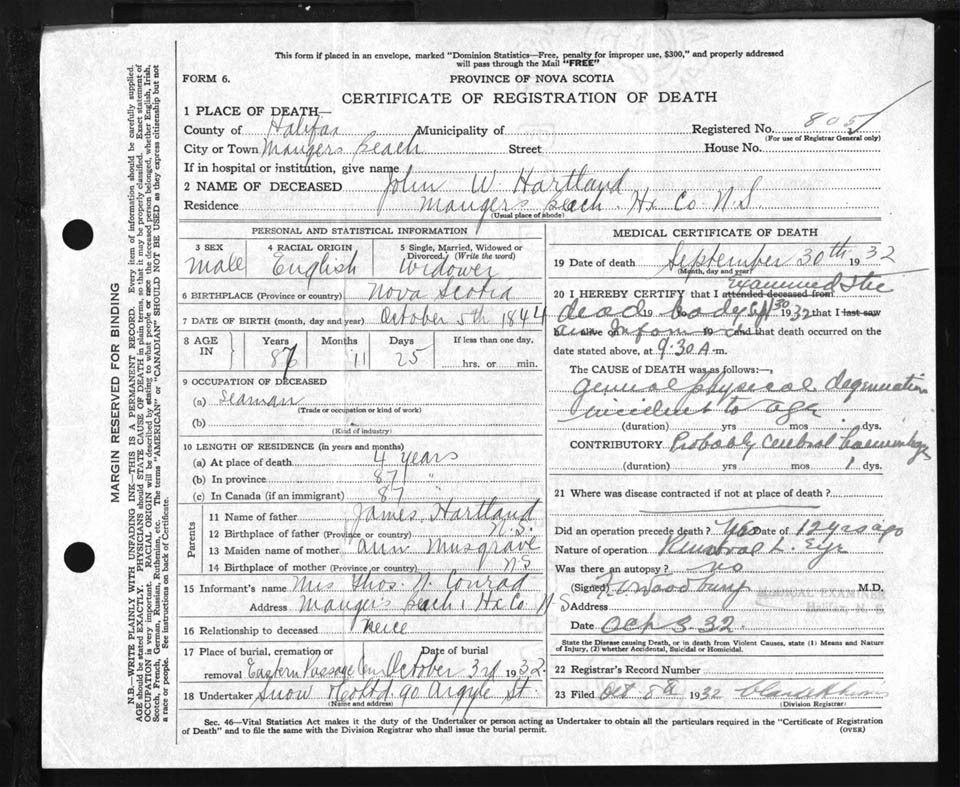 This form if placed in an envelope, marked "Dominion Statistics—Free, penalty for improper use, $300," and properly addressed
will pass through the Mail "FREE"
FORM 6.
PROVINCE OF NOVA SCOTIA
CERTIFICATE OF REGISTRATION OF DEATH
1 PLACE OF DEATH—
County of Halifax Municipality of Registered No. 805
(For use of Registrar General only)
City or Town Maugers Beach Street House No.
If in hospital or institution, give name
2 NAME OF DECEASED John W. Hartland
Residence Maugers Beach Hx Co N.S.
(Usual place of abode)
PERSONAL AND STATISTICAL INFORMATION
3 SEX 4 RACIAL ORIGIN 5 Single, Married, Widowed or
Divorced (Write the word)
Male English Widower
6 BIRTHPLACE (Province or country) Nova Scotia
7 DATE OF BIRTH (month, day and year) October 5th 1844
8 AGE IN Years Months Days If less than one day,
87 11 25 hrs. or min.
9 OCCUPATION OF DECEASED
(a) Seaman
(Trade or occupation or kind of work)
(b)
(Kind of industry)
10 LENGTH OF RESIDENCE (in years and months)
(a) At place of death 4 years
(b) In province 87 "
(c) In Canada (if an immigrant) 87 "
Parents
11 Name of father James Hartland
12 Birthplace of father (Province or country) N.S.
13 Maiden name of mother Ann Musgrave
14 Birthplace of mother (Province or country) N.S
15 Informant's name Mrs Thos. N. Conrad
Address Maugers Beach, Hx Co N S
16 Relationship to deceased Neice
17 Place of burial, cremation or Date of burial
removal Eastern Passage Cem October 3rd 1932
18 Undertaker Snow & Co Ltd 90 Argyle St.
(Name and address)
MEDICAL CERTIFICATE OF DEATH
19 Date of death September 30th 1932
(Month, day and year)
20 I HEREBY CERTIFY that I attended deceased from examined the
dead body Sept 30 1932 that I last saw
h alive on 19 and that death occurred on the
date stated above, at 9.30 A m.
The CAUSE OF DEATH was as follows:—
General physical degeneration
incident to age
(duration) yrs mos dys.
CONTRIBUTORY Probably cerebral haemorrhage
(duration) yrs mos 1 dys.
21 Where was disease contracted if not at place of death?
Did an operation precede death? Yes Date of 12 yrs ago
Nature of operation Removal L. Eye
Was there an autopsy? no
(Signed) Woodbury M.D.
MEDICAL EXAMINER
Halifax, N. S.
Address
Date Oct 3. 32
State the Disease causing Death, or in death from Violent Causes, state (1) Means and Nature
of Injury, (2) whether Accidental, Suicidal or Homicidal.
22 Registrar's Record Number
23 Filed Oct 5th 1932
(Division Registrar)
Sec. 46—Vital Statistics Act makes it the duty of the Undertaker or person acting as Undertaker to obtain all the particulars required in the "Certificate of Registration
of Death" and to file the same with the Division Registrar who shall issue the burial permit. (OVER)
MARGIN RESERVED FOR BINDING
N.B.—WRITE PLAINLY WITH UNFADING INK—THIS IS A PERMANENT RECORD. Every item of information should be carefully supplied.
AGE should be stated EXACTLY. PHYSICIANS should STATE CAUSE OF DEATH in plain terms, so that it may be properly classified. Exact statement of
OCCUPATION is very important. RACIAL ORIGIN will be described by stating to what people or race the deceased person belonged, whether English, Irish,
Scotch, French, German, Russian, Ruthenian, etc. The terms "AMERICAN" or "CANADIAN" SHOULD NOT BE USED as they express citizenship but not
a race or people. See instructions on back of Certificate.